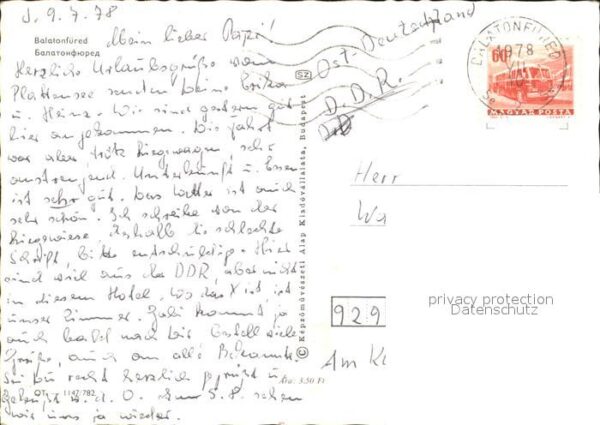 J. 9.7.78
Balatonfüred
Балатонфюред
Mein lieber Papi!
Herzliche Urlaubsgrüße vom
Plattensee senden Deine Erika
u. Heinz. Wir sind gestern gut
hier angekommen. Die Fahrt
war aber, trotz Liegewagen, sehr
anstrengend. Unterkunft u. Essen
ist sehr gut. Das Wetter ist auch
sehr schön. Ich schreibe von der
Liegewiese. Deshalb die schlechte
Schrift, bitte entschuldig. Hier
sind viel aus der DDR, aber nicht
in diesem Hotel. Wo das X ist, ist
unser Zimmer. Gabi kommt ja
auch bald nach hier. Bestell viele
Grüße, auch an alle Bekannte.
Sei Du recht herzlich gegrüßt u.
geküßt v. d. O. Am 5.8. sehen
wir uns ja wieder.
QT 1147/782
Ára: 3,50 Ft
SZ
© Képzőművészeti Alap Kiadóvállalata, Budapest
Ost. Deutschland
D.D.R.
BALATONFÜRED
1978
60f
MAGYAR POSTA
Herr
Wa
929
Am K
privacy protection
Datenschutz